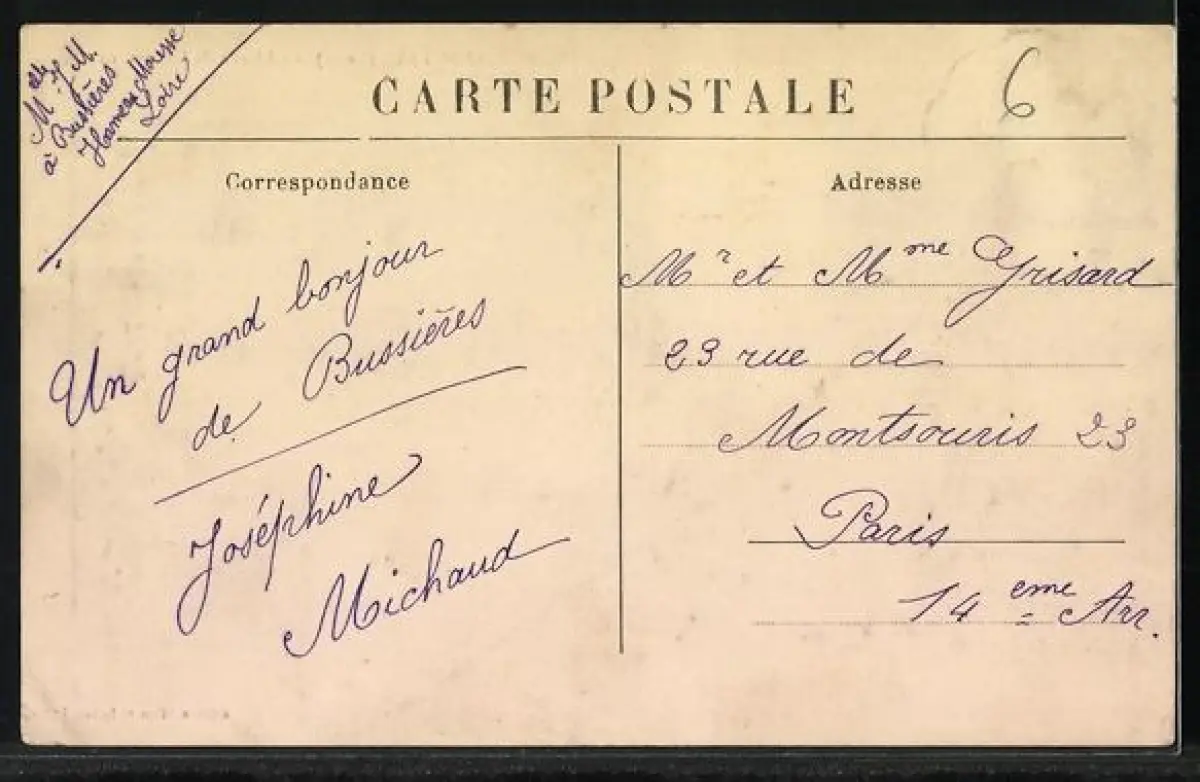 Mlle J. M.
à Bussières
Hameau Mousse
Loire
CARTE POSTALE
6
Correspondance
Adresse
Un grand bonjour
de Bussières
Joséphine
Michaud
Mr et Mme Grisard
23 rue de
Montsouris 23
Paris
14 eme Arr.